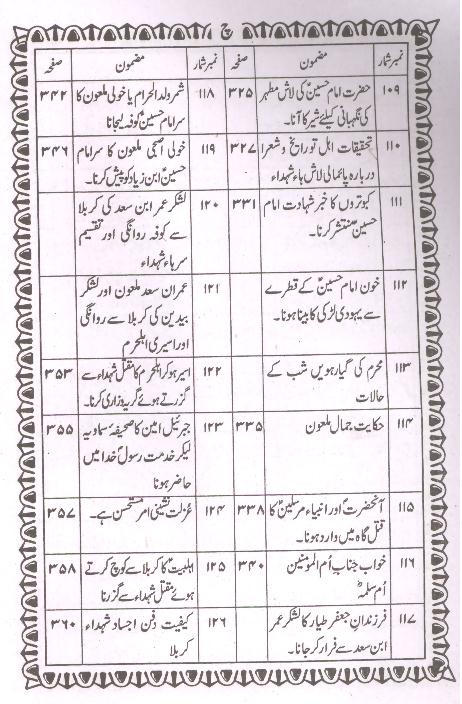 چ
نمبر شمار مضمون صفحہ
۱۰۹ حضرت امام حسینؑ کی لاش مطہر ۳۲۵
کی نگہبانی کیلئے شیر کا آنا۔
۱۱۰ تحقیقات اہل تورایخ و شعرا ۳۲۷
دربارہ پائمالی لاش ہاء شہداء
۱۱۱ کبوتروں کا خبر شہادت امام ۳۳۱
حسینؑ منتشر کرنا۔
۱۱۲ خون امام حسینؑ کے قطرے
سے یہودی لڑکی کا بینا ہونا۔
۱۱۳ محرم کی گیارہویں شب کے
حالات
۱۱۴ حکایت جمال ملعون ۳۳۵
۱۱۵ آنحضرتؐ اور انبیاء مرسلینؑ کا ۳۳۸
قتل گاہ میں وارد ہونا۔
۱۱۶ خواب جناب اُم المومنین ۳۴۰
اُم سلمہؓ
۱۱۷ فرزندان جعفر طیار کا لشکر عمر
ابن سعد سے فرار کر جانا۔
نمبر شمار مضمون صفحہ
۱۱۸ شمر ولد الحرام یا خولی ملعون کا ۳۴۲
سر امام حسینؑ کوفہ لیجانا
۱۱۹ خولی اصبحی ملعون کا سر امام ۳۴۶
حسینؑ ابن زیاد کو پیش کرنا۔
۱۲۰ لشکر عمر ابن سعد کی کربلا
سے کوفہ روانگی اور تقسیم
سر ہاء شہداء
۱۲۱ عمران سعد ملعون اور لشکر
بیدین کی کربلا سے روانگی
اور اسیری اہلحرم
۱۲۲ اسیر ہو کر اہلحرم کا مقتل شہداء سے ۳۵۳
گزرتے ہوئے گریہ و زاری کرنا۔
۱۲۳ جبرئیل امین کا صحیفہ سماویہ ۳۵۵
لیکر خدمت رسولؐ خدا میں
حاضر ہونا
۱۲۴ عزلت نشینی امر مستحسن ہے۔ ۳۵۷
۱۲۵ اہلبیتؑ کا کربلا سے کوچ کرتے ۳۵۸
ہوئے مقتل شہداء سے گزرنا
۱۲۶ کیفیت دفن اجساد شہداء ۳۶۰
کربلا